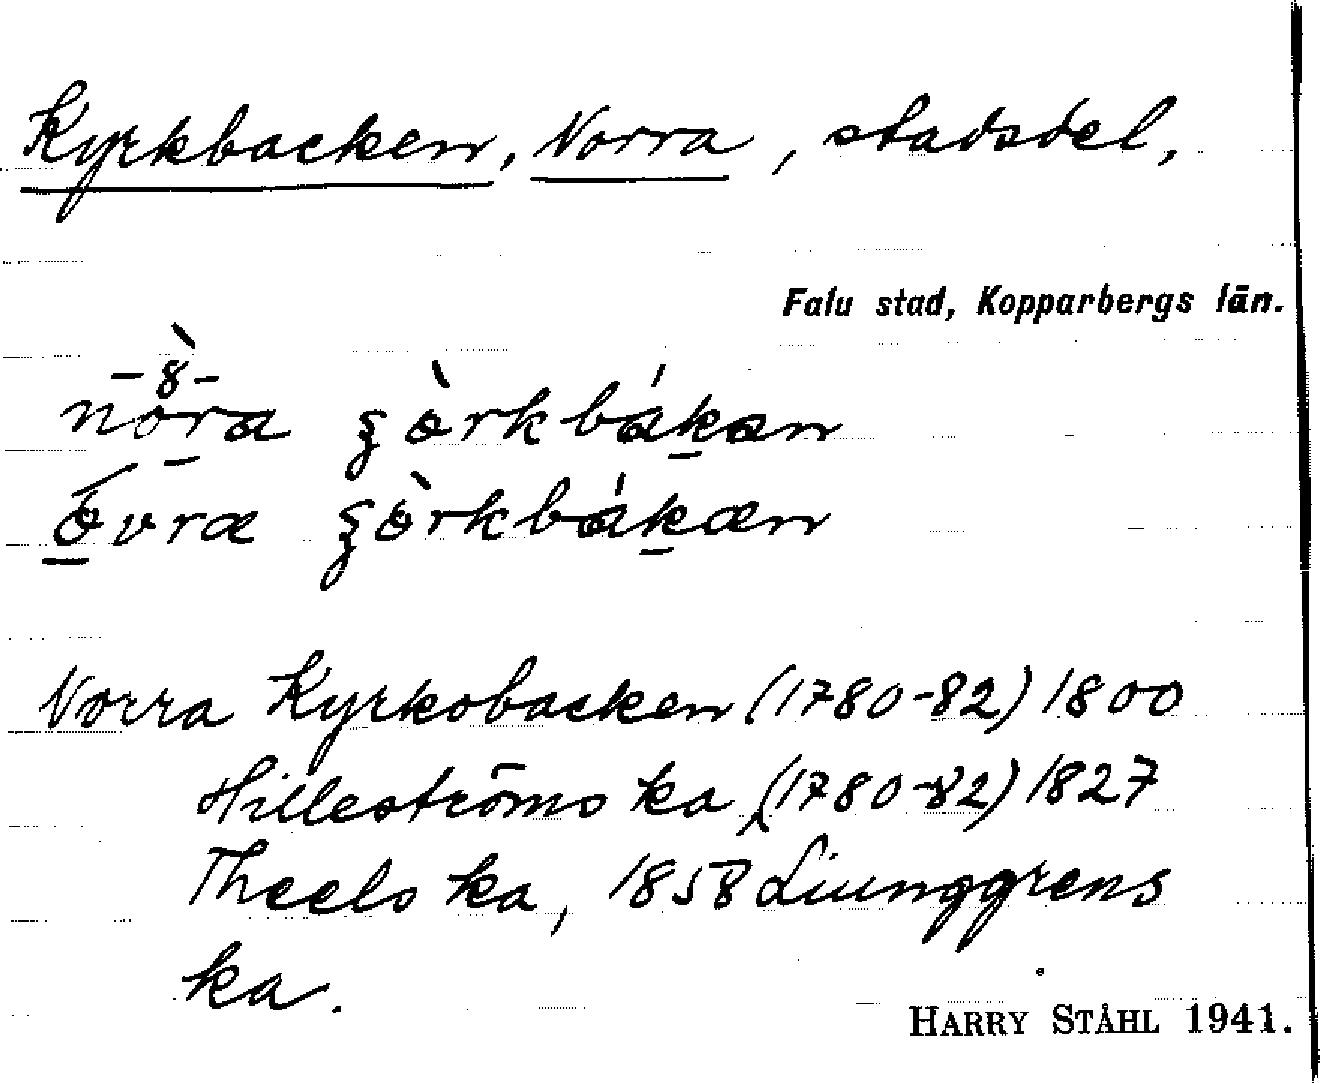 Kyrkbacken, Norra, stadsdel,
Falu stad, Kopparbergs län.
-8-
nòra ʂɵ̀rkbákan
ɵ́vræ ʂɵ̀rkbákæn
Norra Kyrkobacken (1780-82) 1800
Hilleströms ka, (1780-82) 1827
Theels ka, 1858 Liunggrens
ka.
HARRY STÅHL 1941.